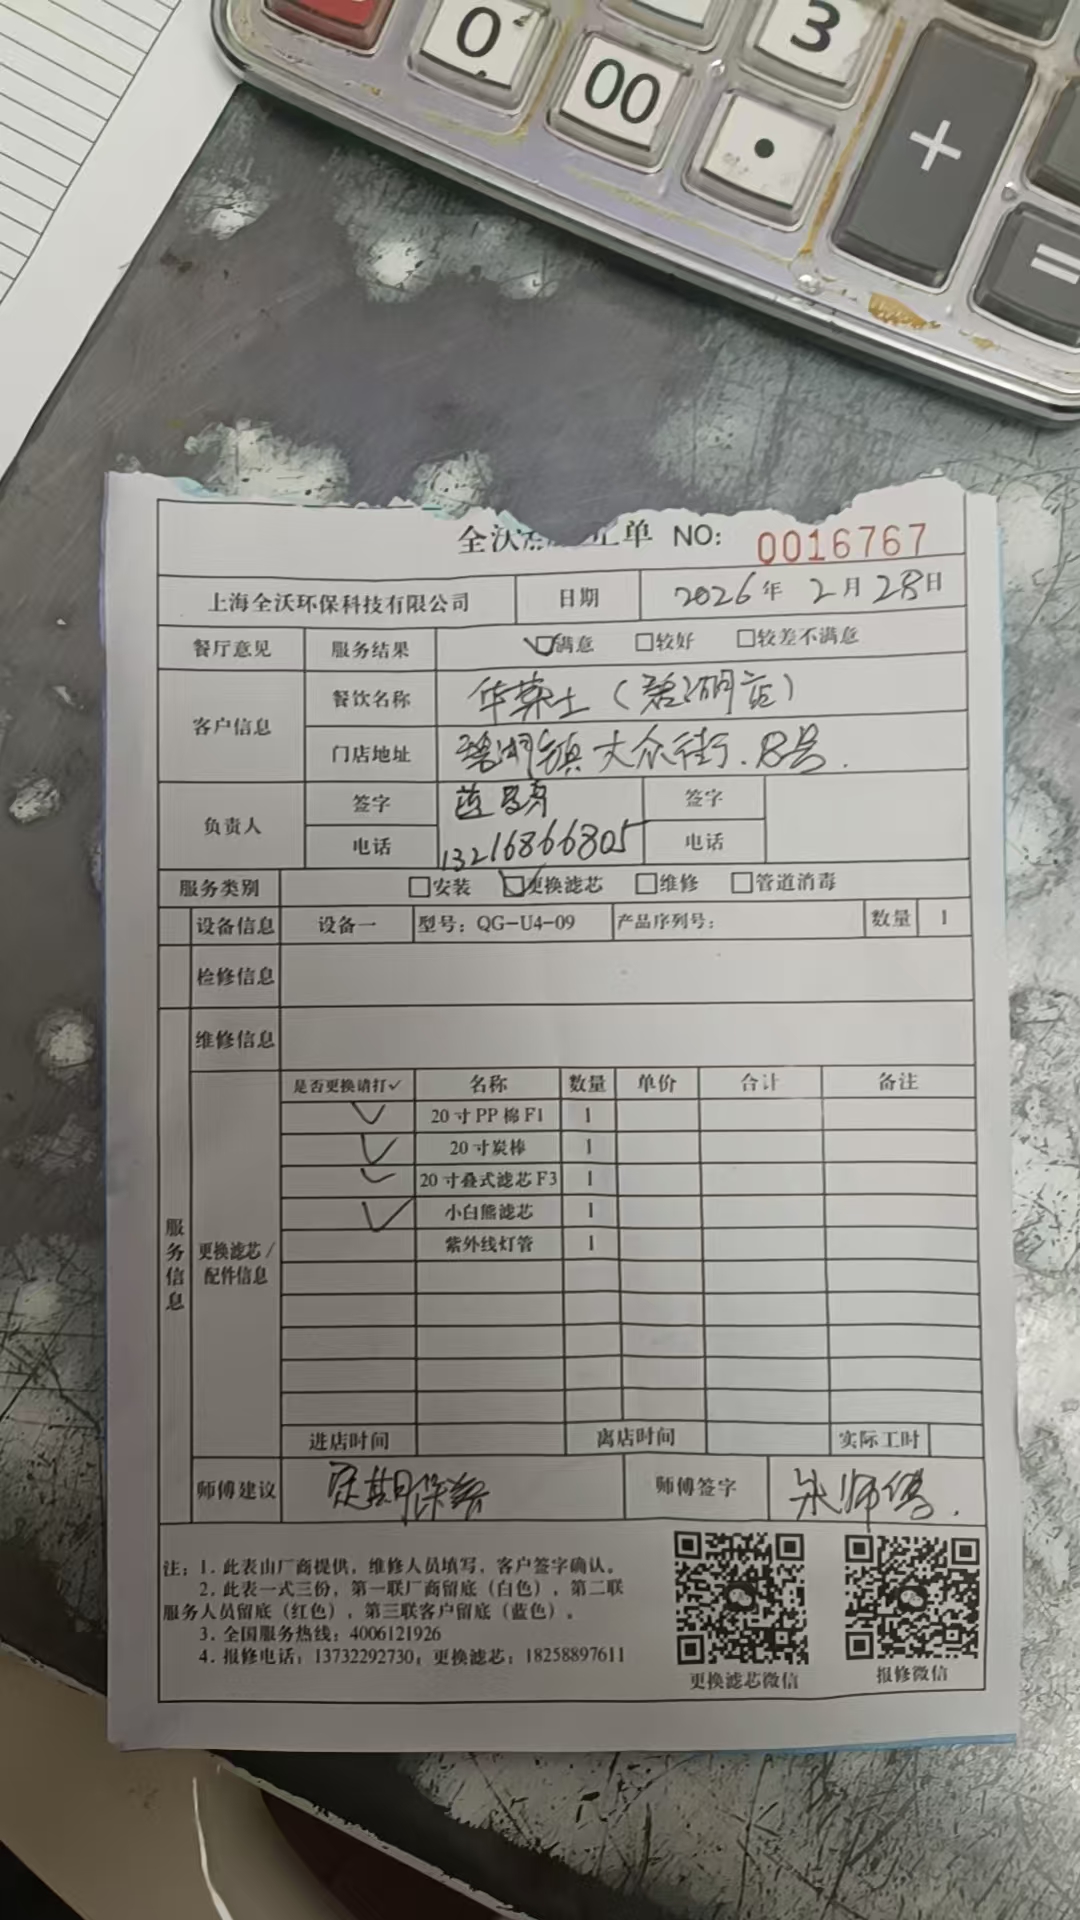 0
00
3
.
+
=
全沃 工单 NO: 0016767
上海全沃环保科技有限公司 日期 2026年 2月28日
餐厅意见 服务结果 ☑满意 □较好 □较差不满意
客户信息 餐饮名称 华莱士(碧湖店)
门店地址 碧湖镇大众街.8号.
负责人 签字 签字
电话 13216866805 电话
服务类别 □安装 ☑更换滤芯 □维修 □管道消毒
设备信息 设备一 型号: QG-U4-09 产品序列号: 数量 1
检修信息
维修信息
服务信息
更换滤芯/配件信息
是否更换请打✓ 名称 数量 单价 合计 备注
✓ 20寸PP棉F1 1
✓ 20寸炭棒 1
✓ 20寸叠式滤芯F3 1
✓ 小白熊滤芯 1
紫外线灯管 1
进店时间 离店时间 实际工时
师傅建议 定期保养 师傅签字 朱师傅.
注: 1. 此表由厂商提供, 维修人员填写, 客户签字确认。
2. 此表一式三份, 第一联厂商留底(白色), 第二联
服务人员留底(红色), 第三联客户留底(蓝色)。
3. 全国服务热线: 4006121926
4. 报修电话: 13732292730; 更换滤芯: 18258897611
更换滤芯微信 报修微信